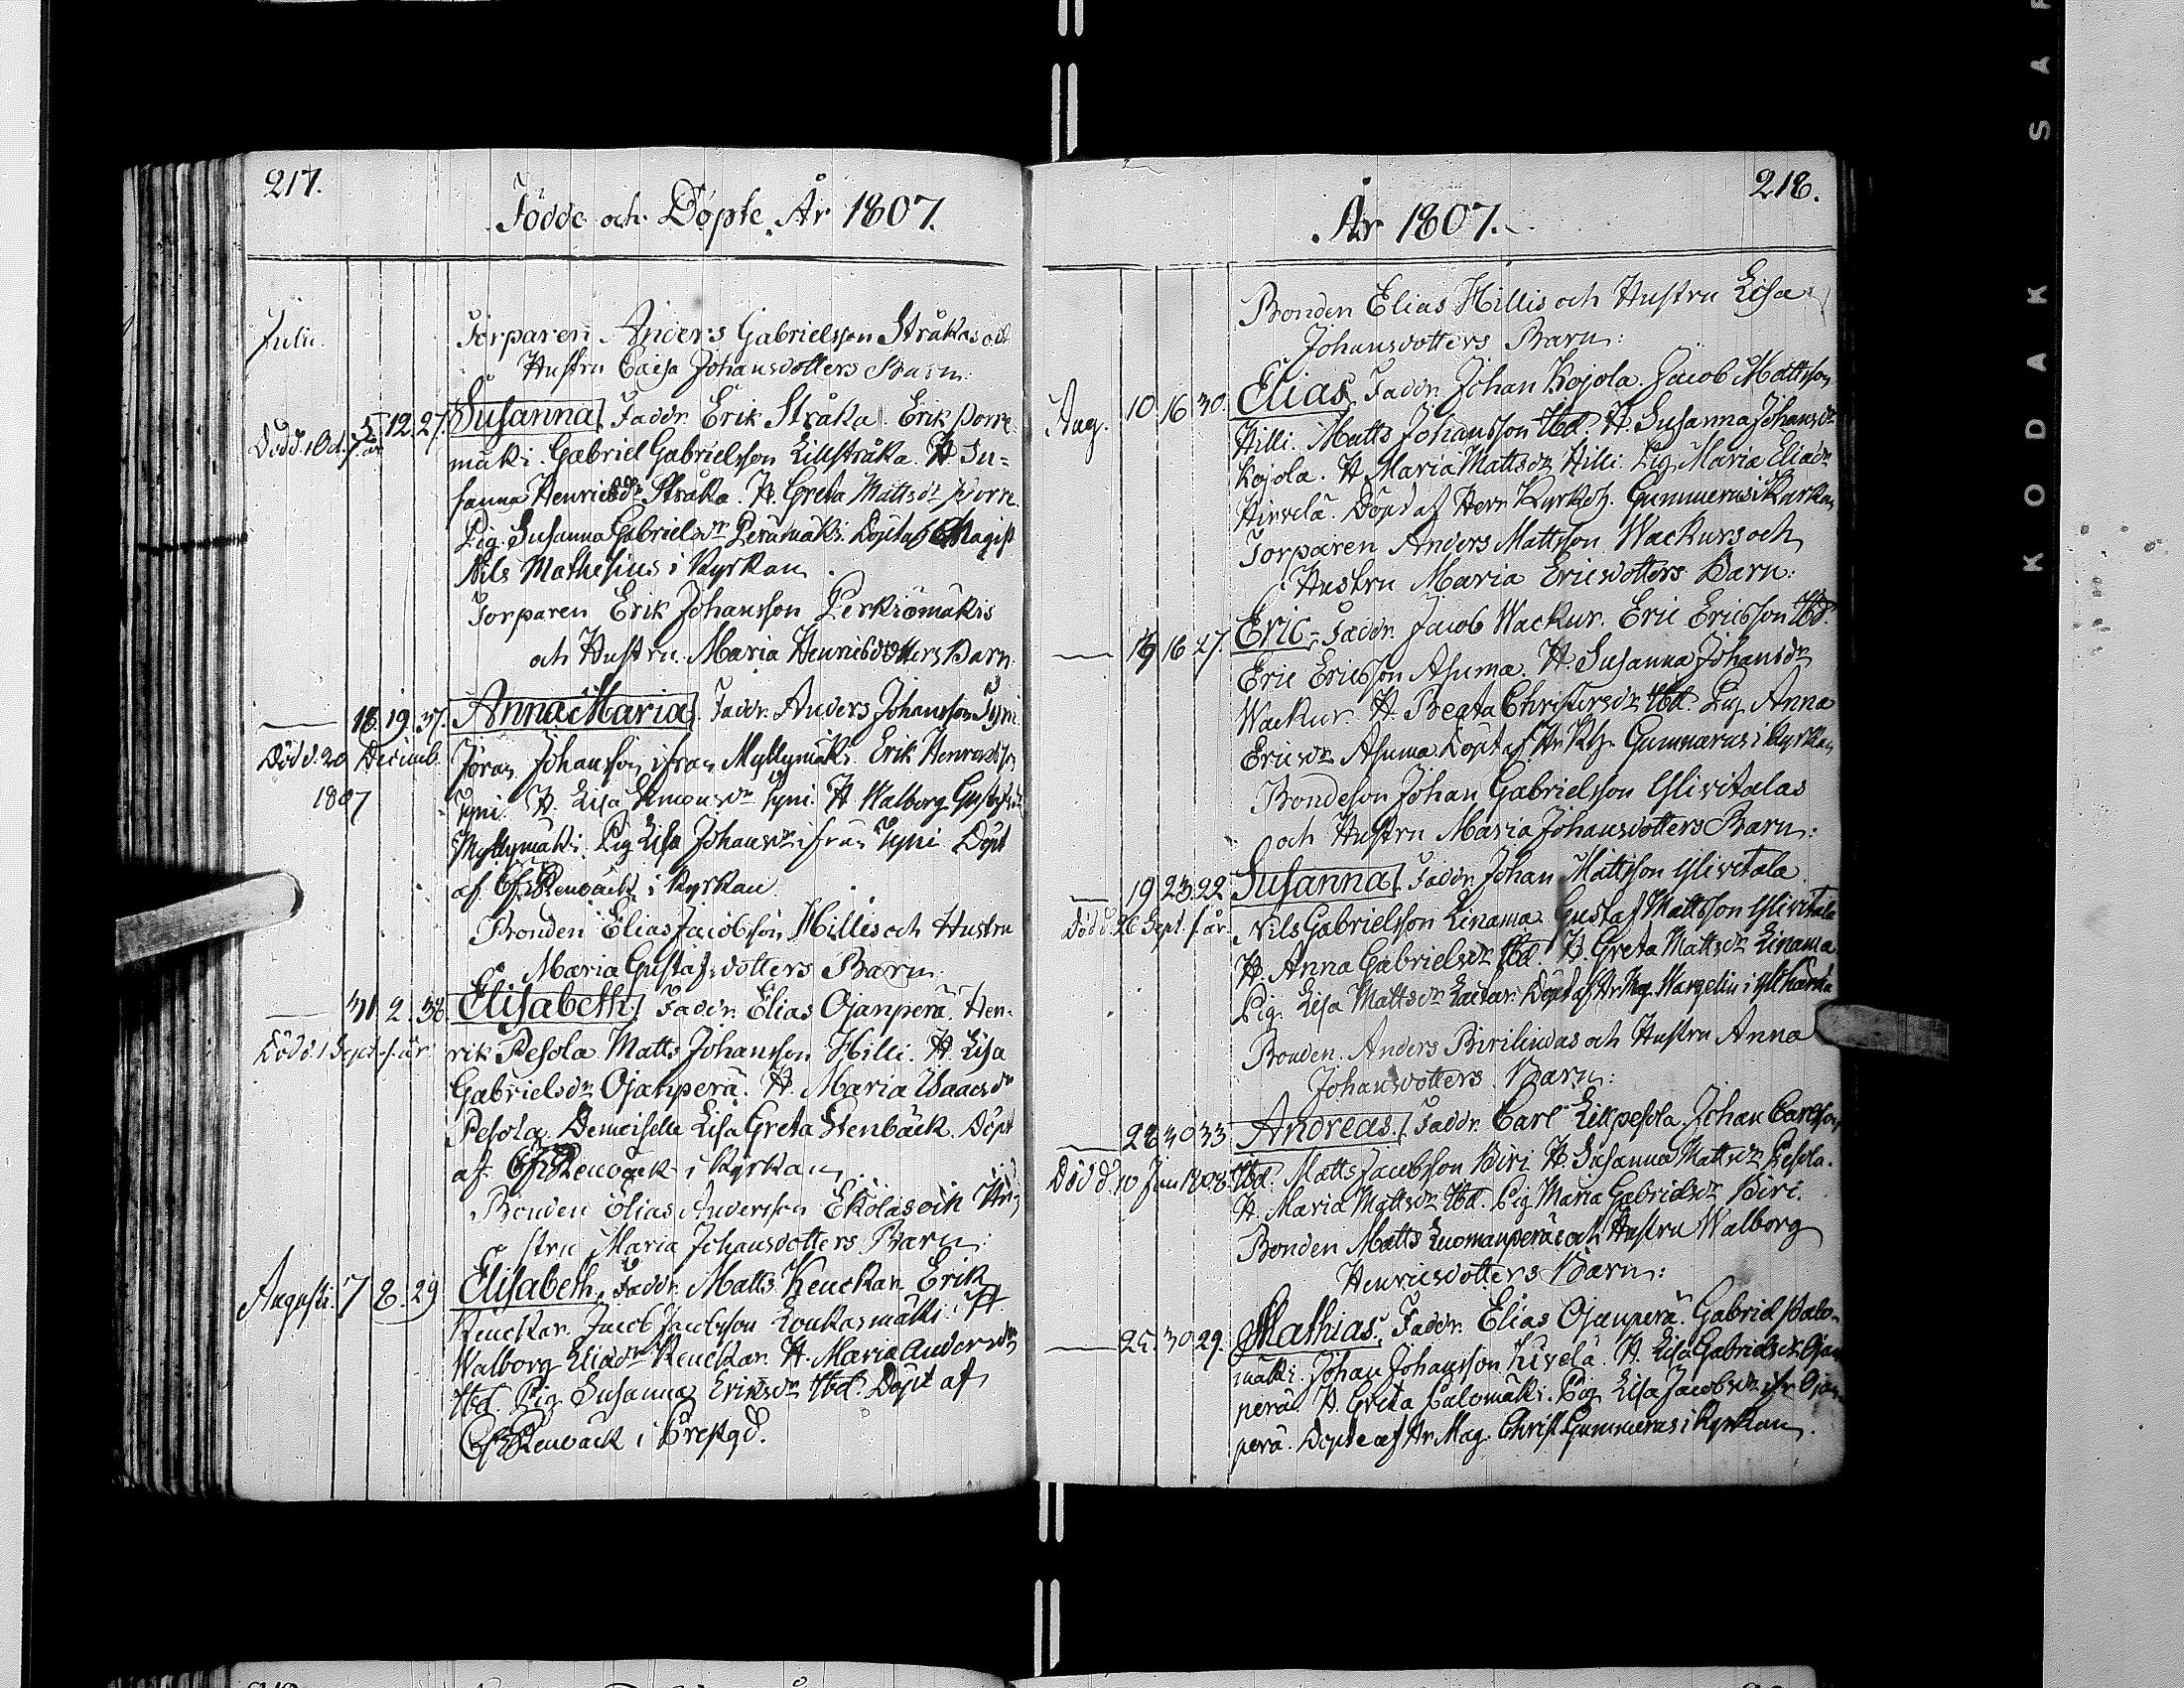 217.
Födde och Döpte År 1807.
Julii.
Torparen Anders Gabrielsson Stråkas och
Hustru Caisa Johansdotters Barn:
Död d. 1 Oct. s. år
5. 12. 27. Susanna. Faddr. Erik Stråka. Erik Porre
mäki. Gabriel Gabrielsson Lillstråka. H. Su-
sanna Henricsdr Stråka. H. Greta Mattsdr Porre.
Pig. Susanna Gabrielsdr Perämäki. Döpt af Magist
Nils Mathesius i Kyrkan.
Torparen Erik Johansson Perkiömäkis
och Hustru Maria Henricsdotters Barn.
18. 19. 37. Anna Maria. Faddr. Anders Johansson Tyni.
Död d. 20 Decemb.
1807
Jöran Johansson ifrån Myllymäki. Erik Henricsson
Tyni. H. Lisa Simonsdr Tyni. H. Walborg Gustafsdr
Myllymäki. Pig. Lisa Johansdr ifrån Tyni. Döpt
af i Kyrkan
Bonden Elias Jacobsson Hillis och Hustru
Maria Gustafsdotters Barn.
31. 2. 38. Elisabeth. Faddr. Elias Ojanperä. Hen-
Död d. 1 Sept. s. år
rik Pesola. Matts Johansson Hilli. H. Lisa
Gabrielsdr Ojanperä. H. Maria Isaacsdr
Pesola. Demoiselle Lisa Greta Stenbäck. Döpt
af i Kyrkan
Bonden Elias Andersson Ekolas och Hu-
stru Maria Johansdotters Barn:
Augusti. 7 8. 29 Elisabeth. Faddr. Matts Kenckar. Erik
Kenckar. Jacob Jacobsson Loukasmäki. H.
Walborg Eliadr Kenckar. H. Maria Andersdr
Ibd. Pig. Susanna Eriksdr Ibd. Döpt af
i Prestgd.
218.
År 1807.
Bonden Elias Hillis och Hustru Lisa
Johansdotters Barn:
Aug. 10. 16. 30. Elias. Faddr. Johan Kojola. Jacob Mattsson
Hilli. Matts Johansson Ibd. H. Susanna Johansdr
Kojola. H. Maria Mattsdr Hilli. Pig. Maria Eliadr
Hirvelä. Döpt af Herr Kyrkoh. Gummerus i Kyrkan
Torparen Anders Mattsson Wackurs och
Hustru Maria Ericsdotters Barn:
16 27. Eric. Faddr. Jacob Wackur. Eric Ericsson Ibd.
Eric Ericsson Asuma. H. Susanna Johansdr
Wackur. H. Beata Christersdr Ibd. Pig. Anna
Ericsdr Asuma. Döpt af Hr Kh. Gummerus i Kyrkan
Bondeson Johan Gabrielsson Ylivitalas
och Hustru Maria Johansdotters Barn:
19 23. 22 Susanna. Faddr. Johan Mattsson Ylivitala
Död d. 26 Sept. s. år.
Nils Gabrielsson Linama. Gustaf Mattsson Ylivitala
H. Anna Gabrielsdr Ibd. H. Greta Mattsdr Linama.
Pig. Lisa Mattsdr Döpt af Hr Mag. i
Bonden Anders Birilindas och Hustru Anna
Johansdotters Barn:
28 30 33 Andreas. Faddr. Carl Lillpesola. Johan Carlsson
Död d. 10 Jun 1808.
Ibd. Matts Jacobsson Biri. H. Susanna Mattsdr Pesola.
H. Maria Mattsdr Ibd. Pig. Maria Gabrielsdr Biri.
Bonden Matts Luomanperäs och Hustru Walborg
Henricsdotters Barn:
25. 30 29. Mathias. Faddr. Elias Ojanperä. Gabriel Palo-
mäki. Johan Johansson H. Lisa Gabrielsdr Ojan
perä. H. Greta Palomäki. Pig. Lisa Jacobsdr ifr. Ojan
perä. Döpte af Hr Mag. Christ. Gummerus i Kyrkan.
KODAK SAF